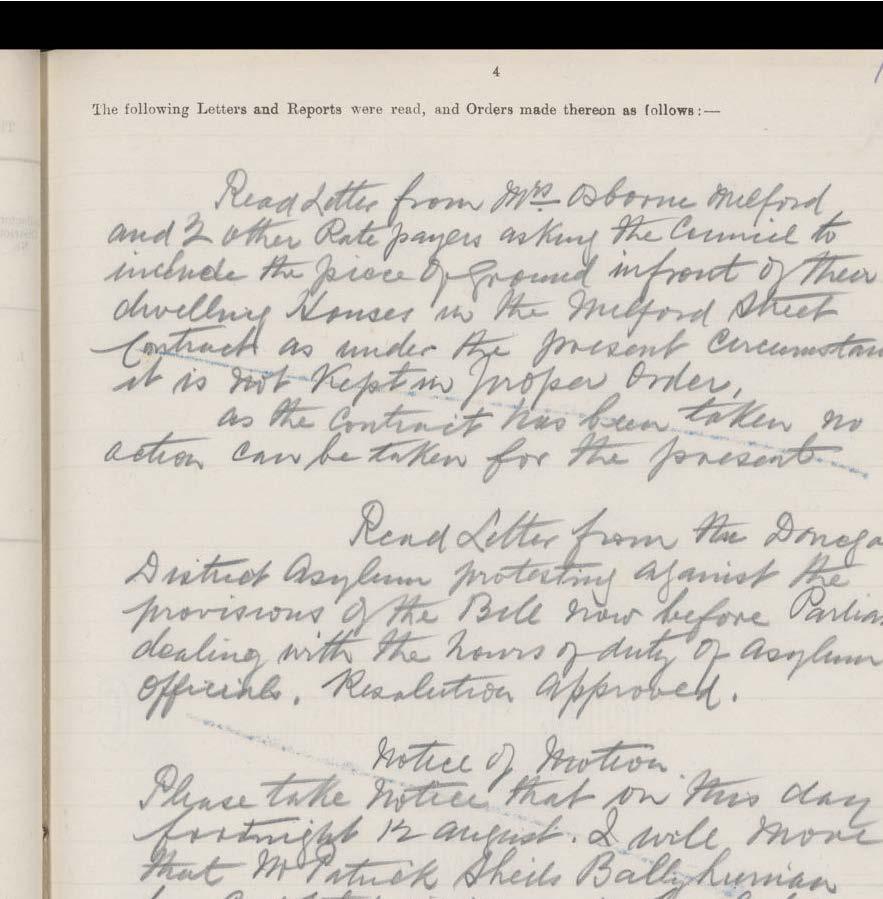 4
The following Letters and Reports were read, and Orders made thereon as follows:—
Read Letter from Mrs Osborne Milford
and 2 other Rate payers asking the Council to
include the piece of Ground infront of their
dwelling Houses in the Milford Street
Contract as under the present Circumstan
it is not Kept in proper order,
as the Contract has been taken no
action can be taken for the present
Read Letter from the Donega
District Asylum protesting against the
provisions of the Bill now before Parlia
dealing with the hours of duty of Asylum
Officials. Resolution approved.
Notice of Motion
Please take Notice that on this day
fortnight 12 august. I will move
that Mr Patrick Sheils